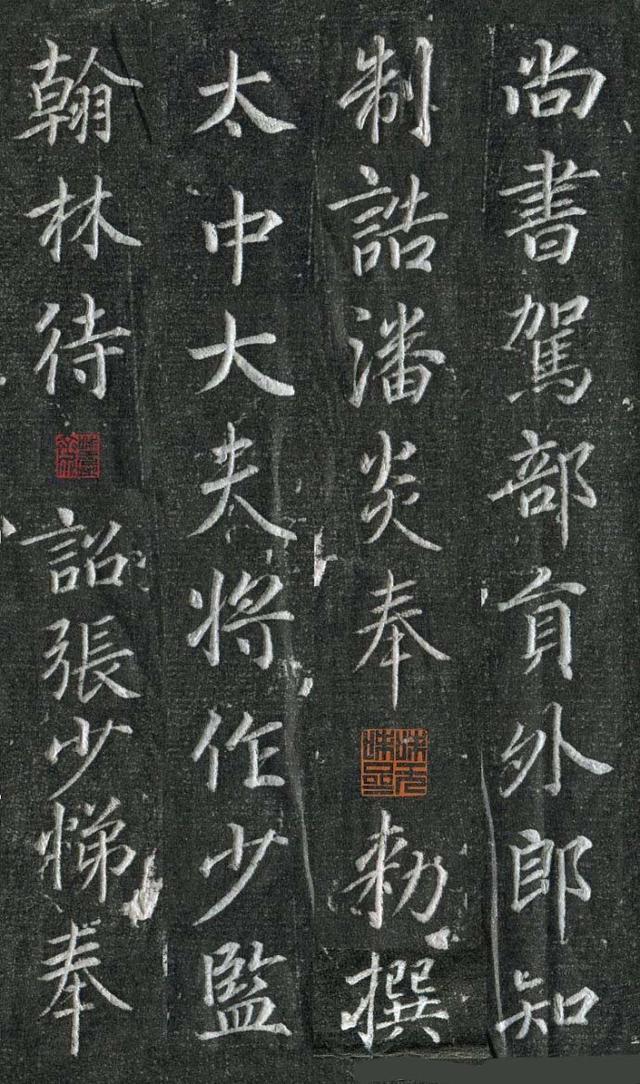 尚書駕部貟外郎知
制誥潘炎奉勑撰
太中大夫將作少監
翰林待詔張少悌奉